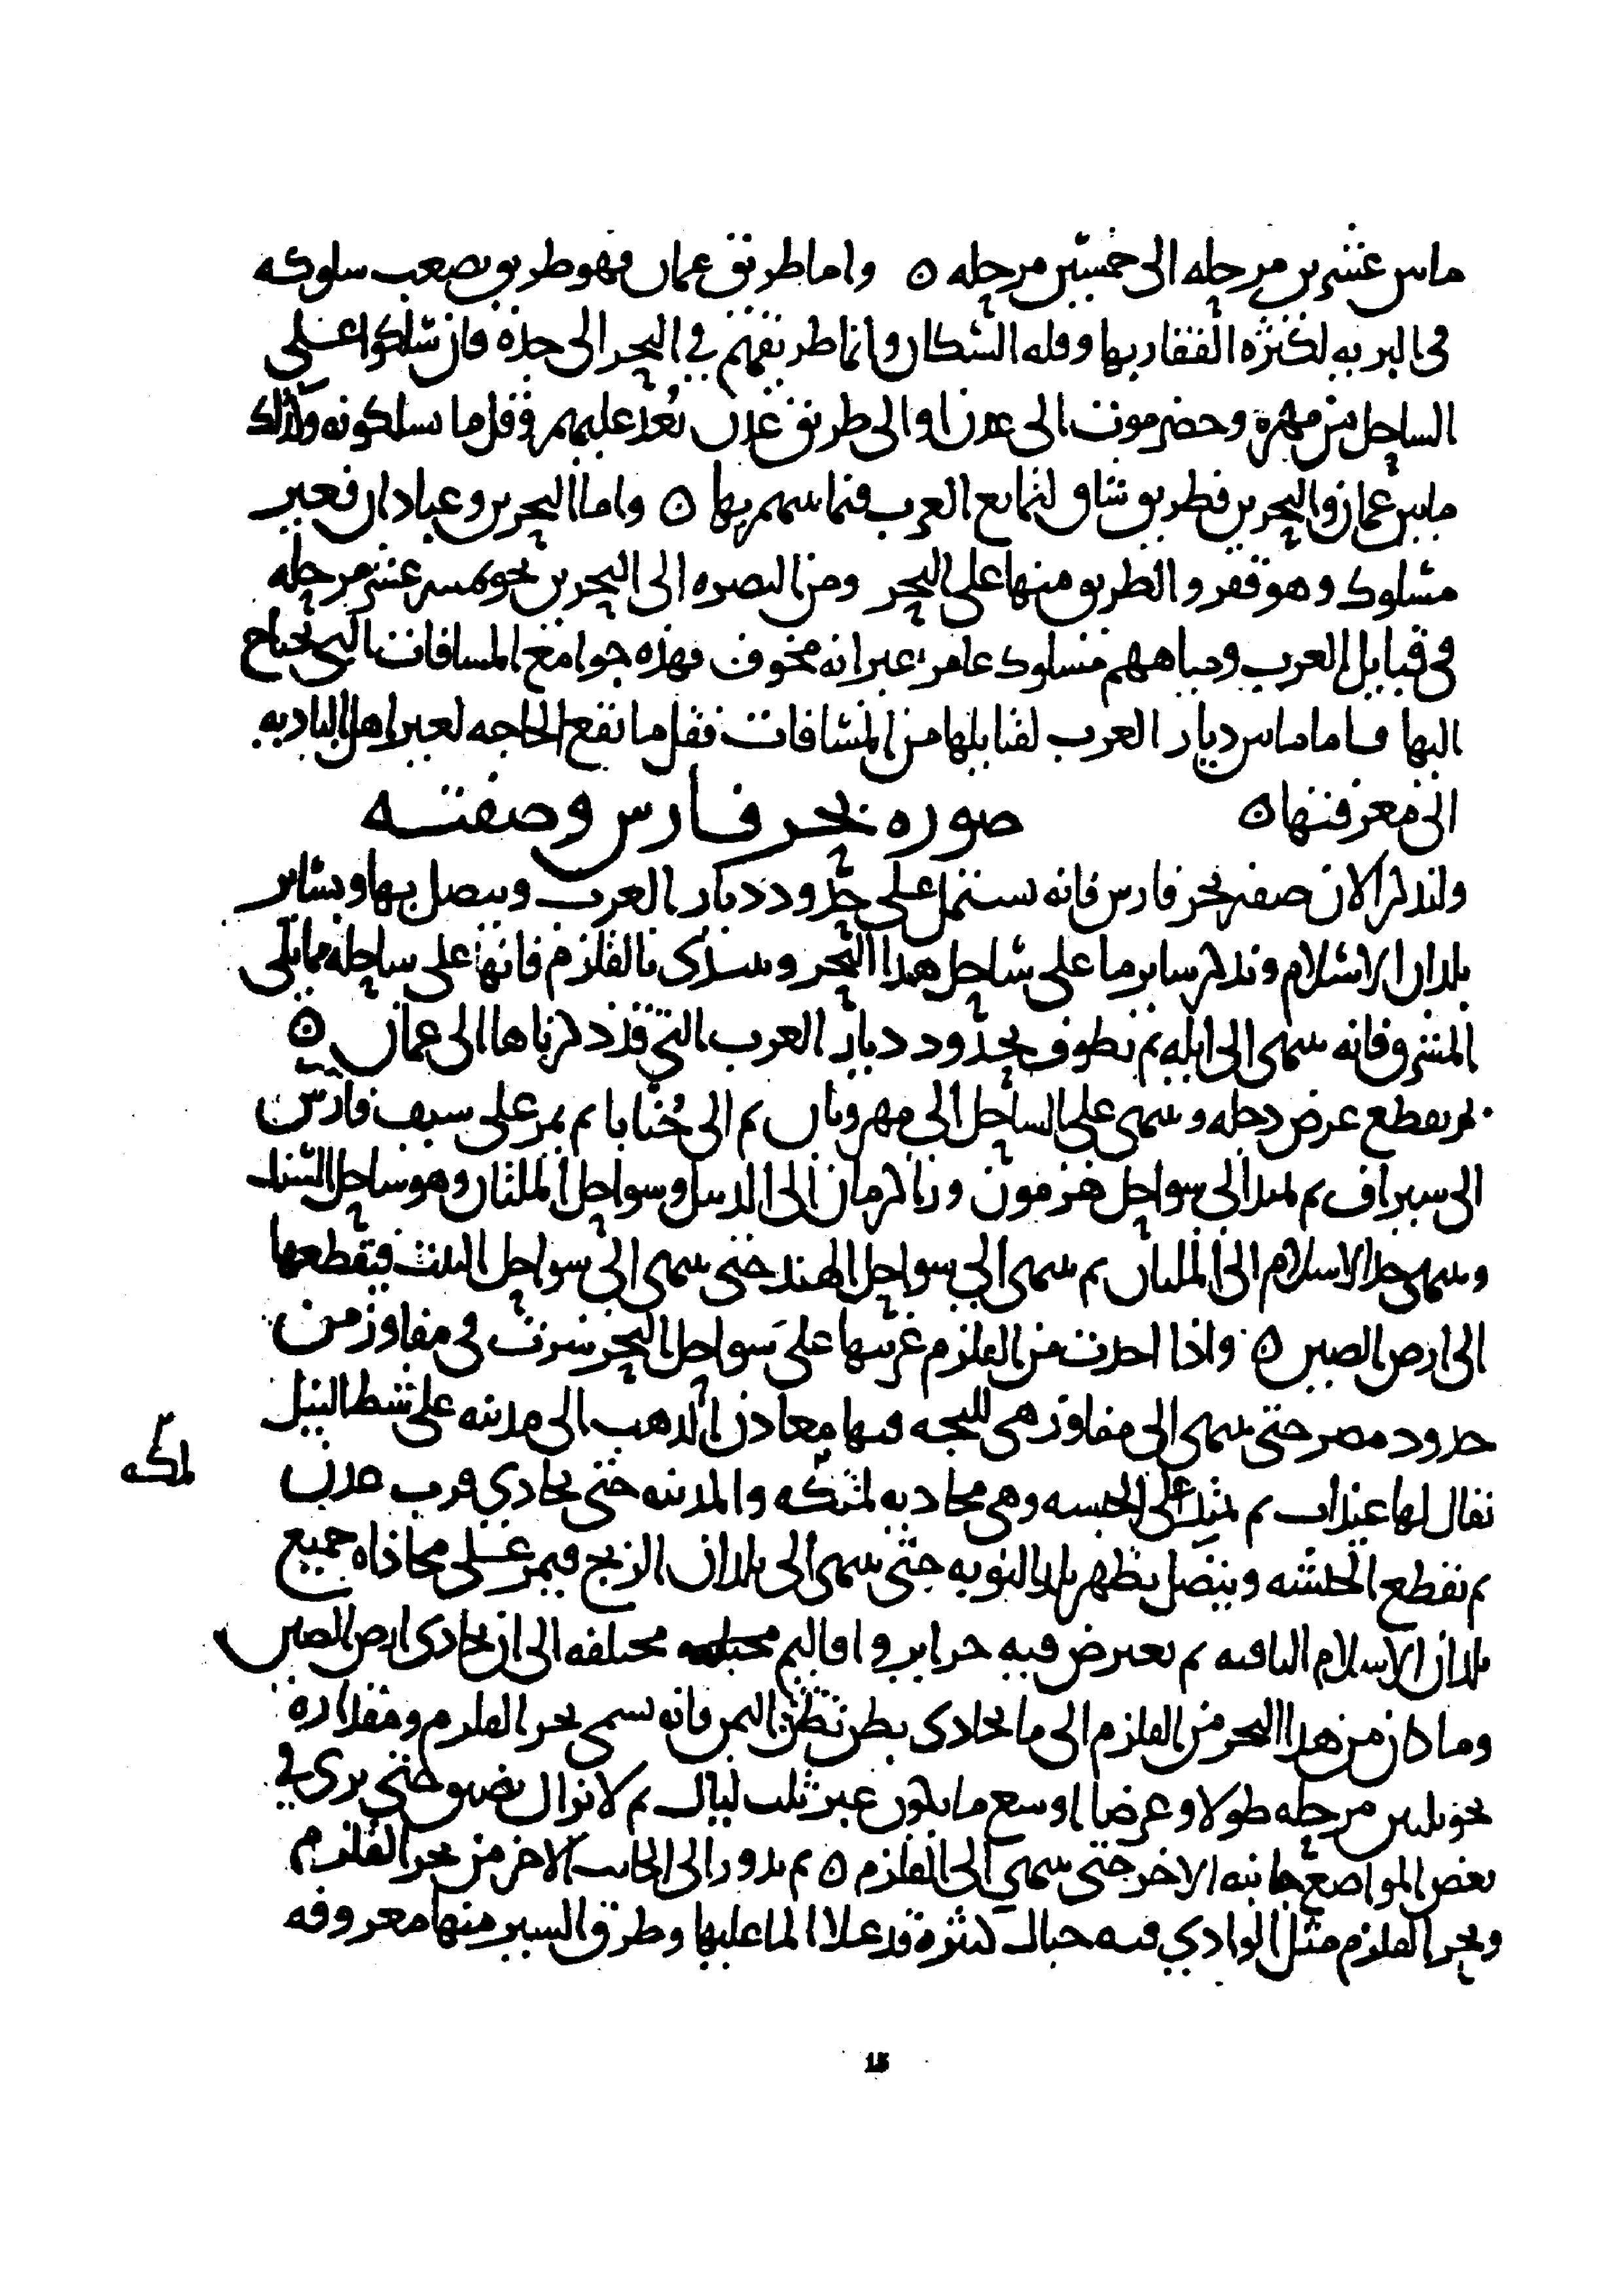 ما بين عشرين مرحلة الى خمسين مرحله ٥ واما طريق عمان فهو طريق يصعب سلوكه
فى البريه لكثره القفار بها وقله السكان وانما طريقهم في البحر الى جدة فان سلكوا على
الساحل من مهرة وحضرموت الى عدن او الى طريق عدن بعد عليهم وقل ما يسلكونه وكذلك
ما بين عمان والبحرين فطريق شاق لتمانع العرب فيما بينهم بها ٥ واما البحرين وعبادان فغير
مسلوك وهو قفر والطريق منها على البحر ومن البصره الى البحرين نحو خمسه عشر مرحله
فى قبايل العرب ومياههم مسلوك عامر غير انه مخوف فهذه جوامع المسافات التي يحتاج
اليها فاما ما بين ديار العرب لقبايلها من المسافات فقل ما تقع الحاجه لغير اهل الباديه
الى معرفتها ٥
صوره بحر فارس وصفته
ولنذكر الان صفه بحر فارس فانه يشتمل على حدود ديار العرب ويتصل بها وبساير
بلدان الاسلام ونذكر ساير ما على ساحل هذا البحر ونبتدى بالقلزم فانها على ساحله مما يلى
المشرق فانه ينتهى الى ايله ثم يطوف بحدود ديار العرب التي قد ذكرناها الى عمان ٥
ثم يقطع عرض دجله وينتهى على الساحل الى مهروبان ثم الى جنابا ثم يمر على سيف فارس
الى سيراف ثم يمتد الى سواحل هرموز ورا كرمان الى الديبل وسواحل الملتان وهو ساحل السند
وينتهى حد الاسلام الى الملتان ثم ينتهى الى سواحل الهند حتى ينتهى الى سواحل التبت فيقطعها
الى ارض الصين ٥ واذا اخذت من القلزم غربيها على سواحل البحر سرت فى مفاوز من
حدود مصر حتى ينتهى الى مفاوز هى للبجه وبها معادن الذهب الى مدينه على شط النيل
يقال لها عيذاب ثم يمتد على الحبشه وهى محاذيه لمكه والمدينه حتى يحاذي قرب عدن
لمكه
ثم يقطع الحبشه ويتصل بظهر بلد النوبه حتى ينتهى الى بلدان الزنج فيمر على محاذاه جميع
بلدان الاسلام الباقيه ثم تعترض فيه جزاير واقاليم مختلفه الى ان يحاذى ارض الصين
وما كان من هذا البحر من القلزم الى ما يحاذى بطن اليمن فانه يسمى بحر القلزم ومقداره
نحو ثلثين مرحله طولا وعرضا اوسع ما يكون عبر ثلث ليال ثم لا يزال يضيق حتى يرى في
بعض المواضع جانبه الاخر حتى ينتهي الى القلزم ٥ ثم يدور الى الجانب الاخر من بحر القلزم
وبحر القلزم مثل الوادي فيه جبال كثيرة قد علا الما عليها وطرق السير منها معروفه
15